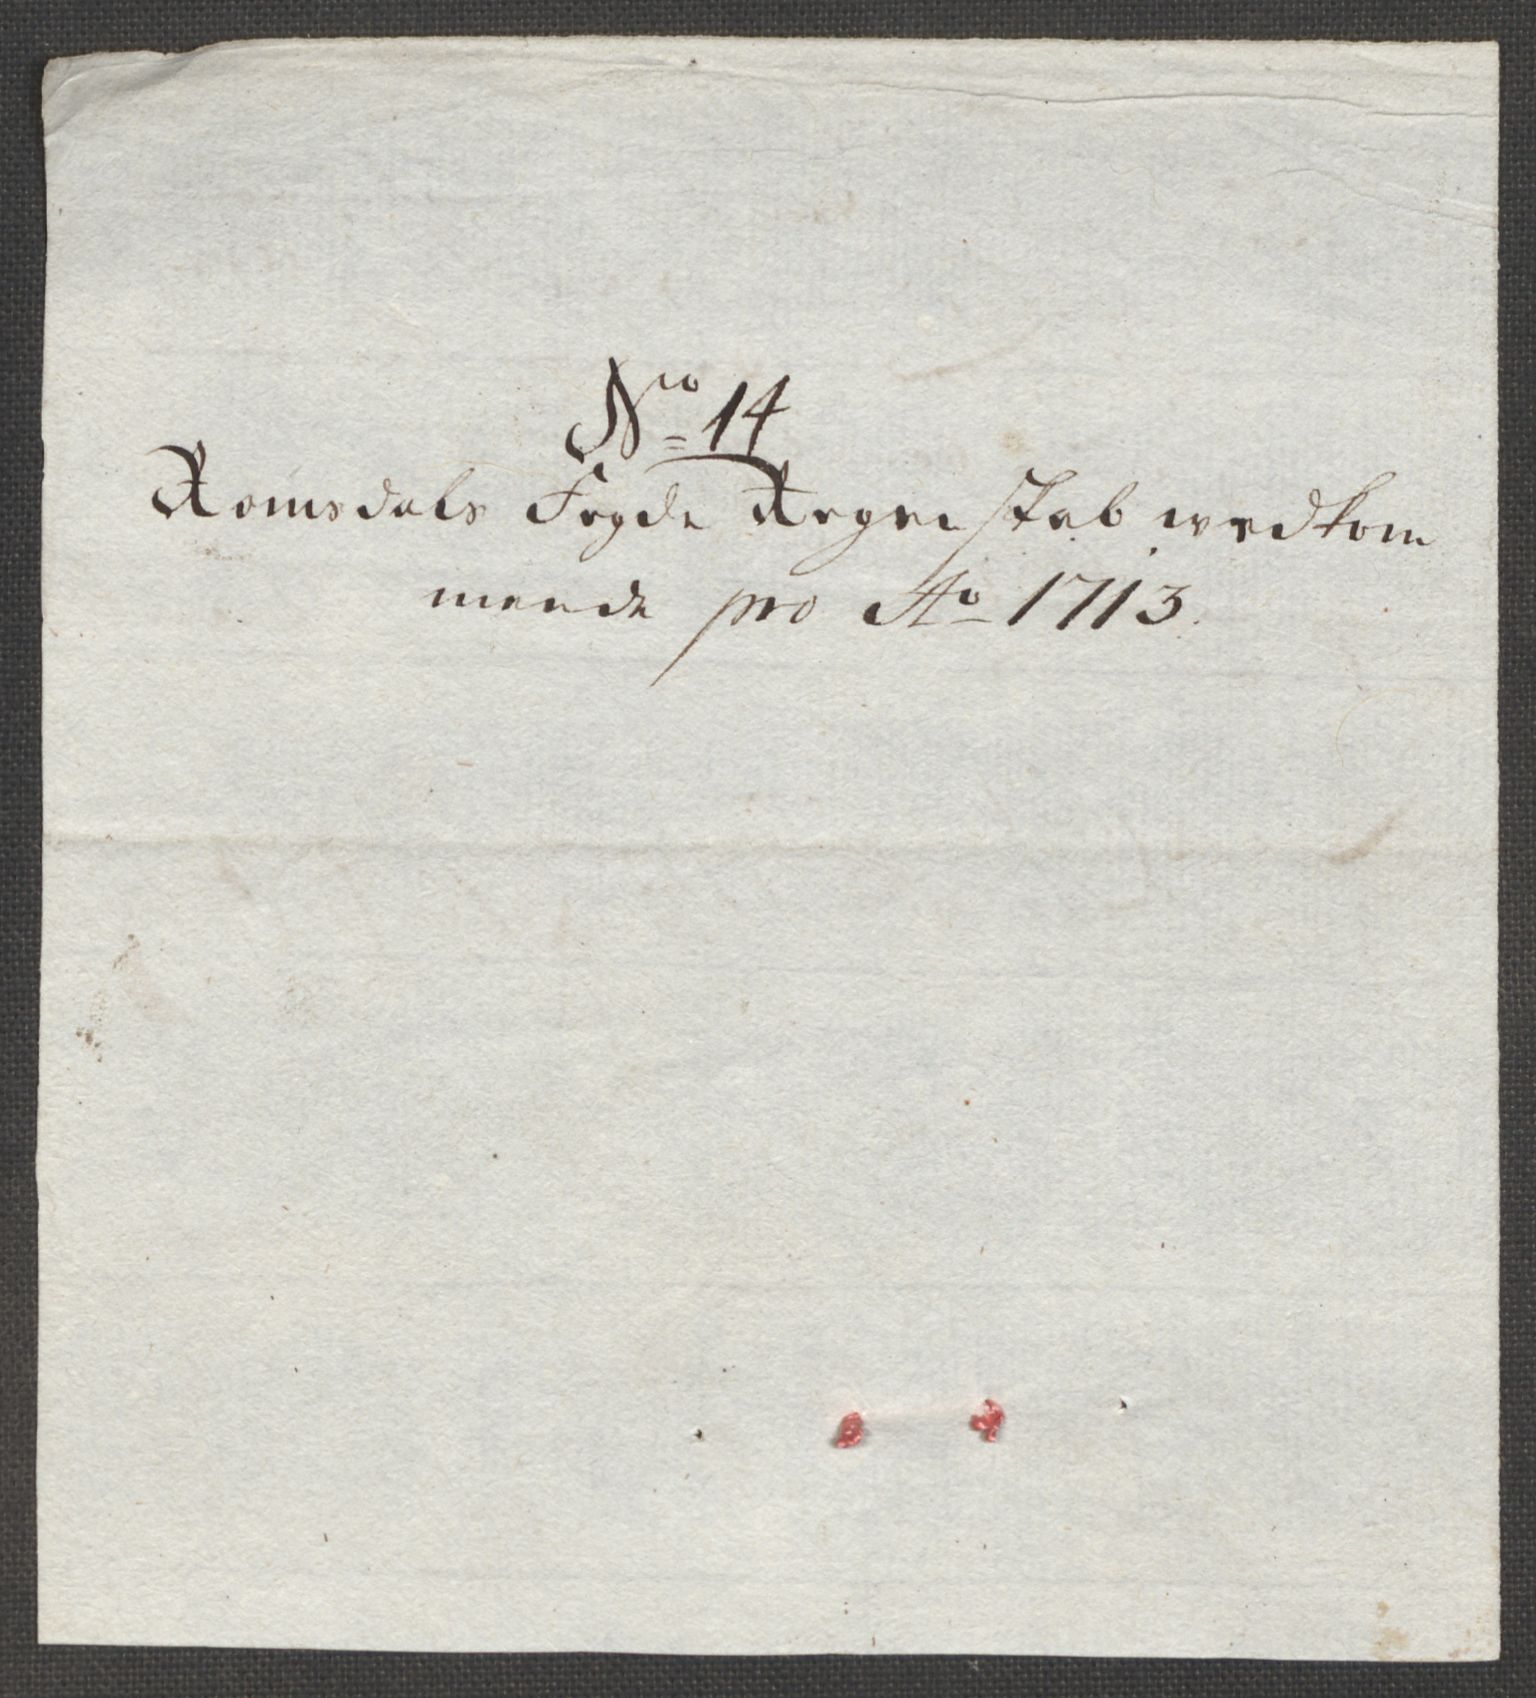 No 14
Romsdals Fogde Regenskab wedkom
mende pro Ao 1713.